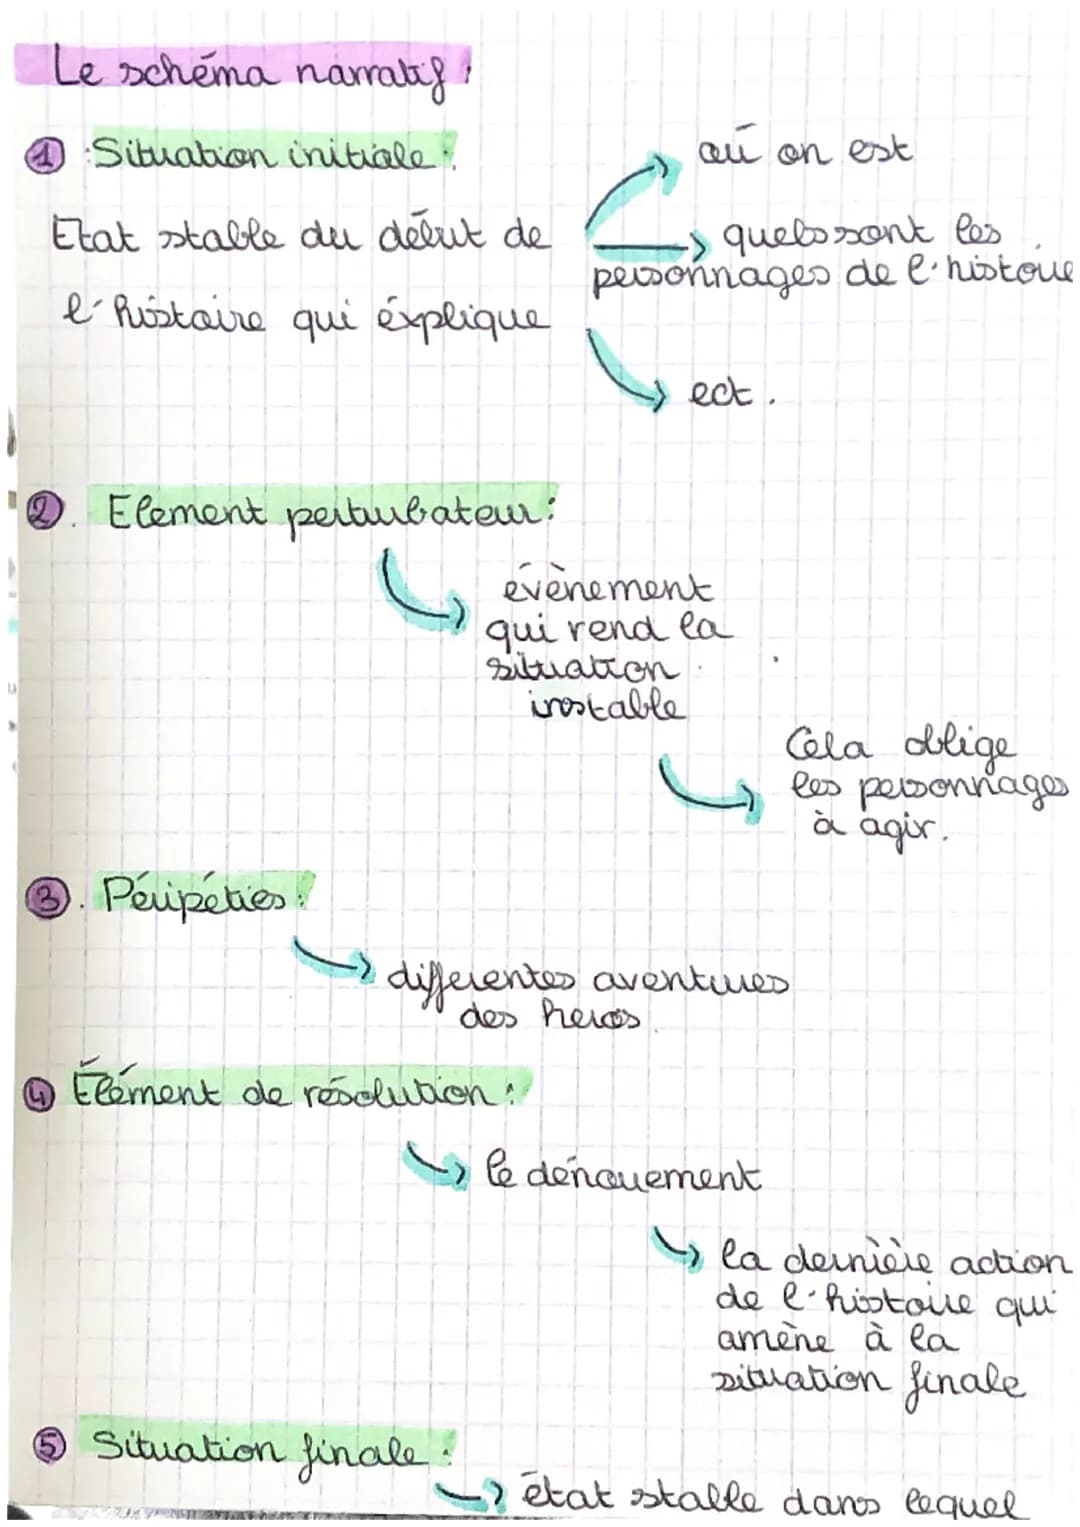 Le schéma narratif :
1 Situation initiale :
où on est
Etat stable du début de
quels sont les
personnages de l'histoire
l'histoire qui éxplique
ect.
2. Element perturbateur :
évènement
qui rend la
situation
instable
Cela oblige
les personnages
à agir.
3. Péripéties :
differentes aventures
des heros
4 Élément de résolution :
le dénouement
la dernière action
de l'histoire qui
amène à la
situation finale
5 Situation finale :
état stable dans lequel